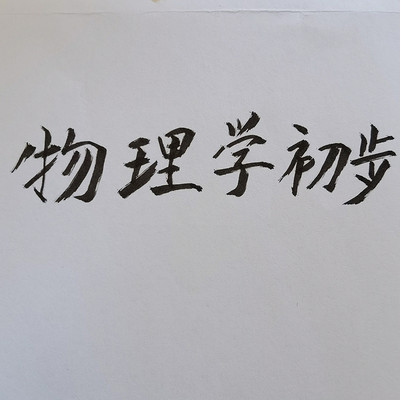 物理学初步